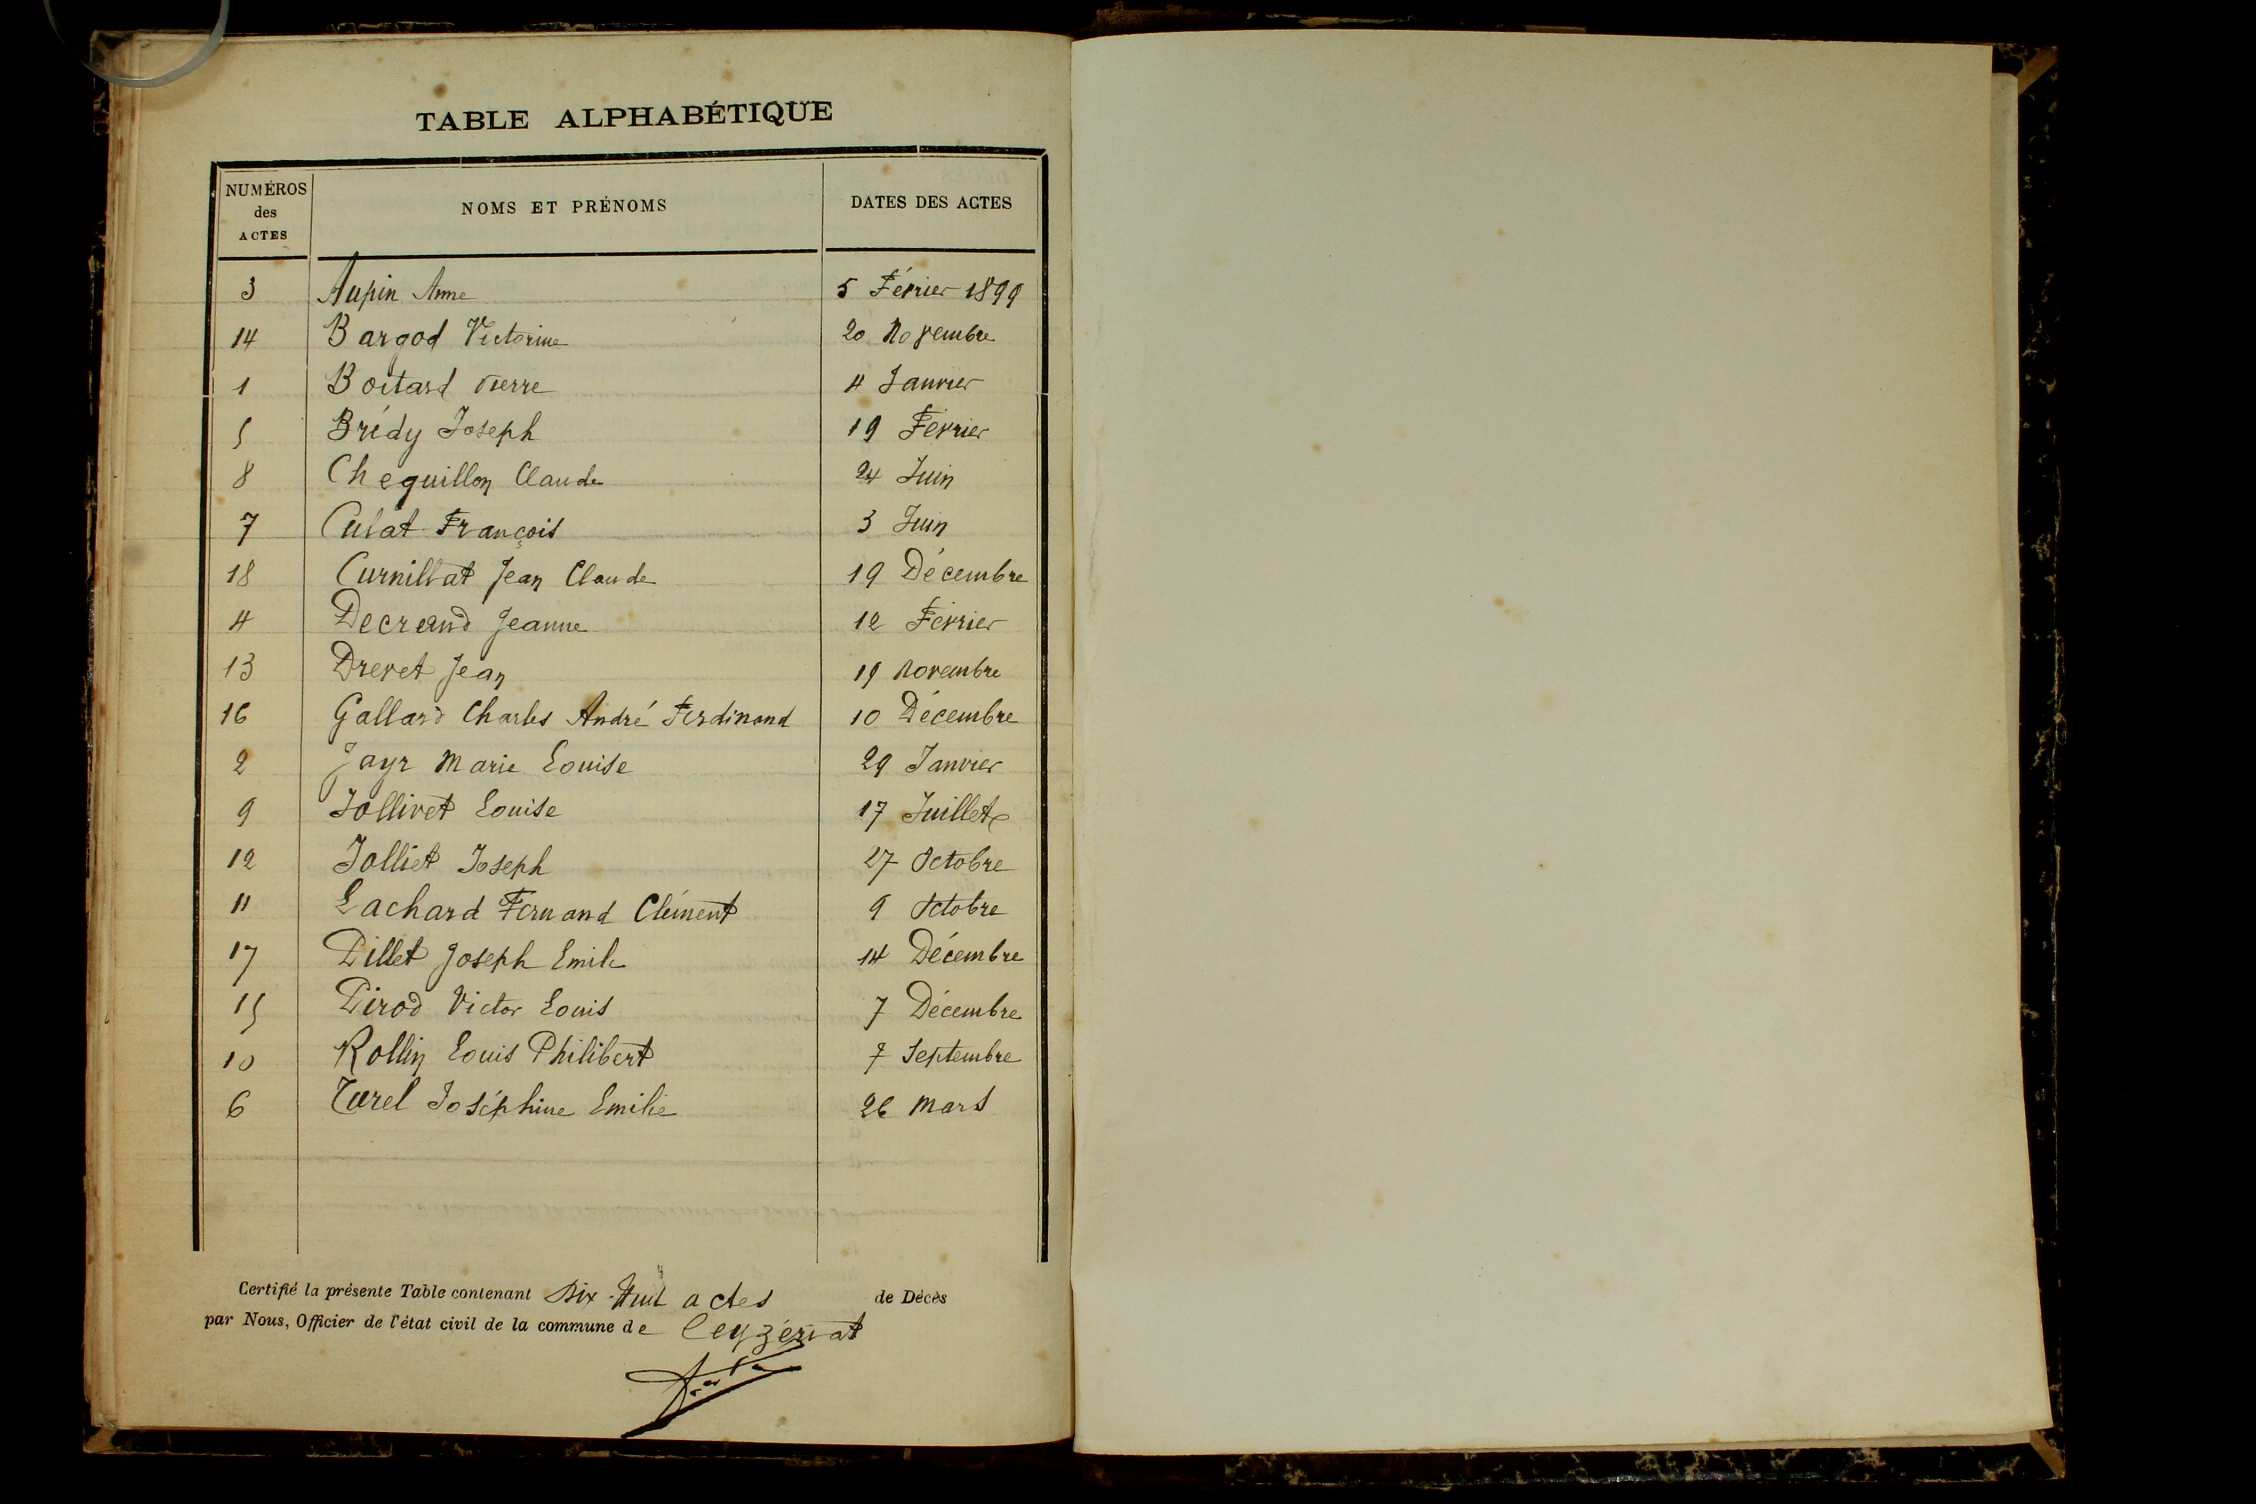 TABLE ALPHABÉTIQUE
NUMÉROS des ACTES NOMS ET PRÉNOMS DATES DES ACTES
3 Aupin Anne 5 Février 1899
14 Bargod Victorine 20 Novembre
1 Boitard Pierre 4 Janvier
5 Brédy Joseph 19 Février
8 Cheguillon Claude 24 Juin
7 Culat François 3 Juin
18 Curnillat Jean Claude 19 Décembre
4 Decrand Jeanne 12 Février
13 Drevet Jean 19 Novembre
16 Gallard Charles André Ferdinand 10 Décembre
2 Jayr Marie Louise 29 Janvier
9 Jollivet Louise 17 Juillet
12 Jolliet Joseph 27 Octobre
11 Lachard Fernand Clément 9 Octobre
17 Pillet Joseph Emile 14 Décembre
15 Pirod Victor Louis 7 Décembre
10 Rollin Louis Philibert 7 Septembre
6 Turel Joséphine Emilie 26 Mars
Certifié la présente Table contenant Dix-Huit actes de Décès
par Nous, Officier de l'état civil de la commune de Ceyzériat